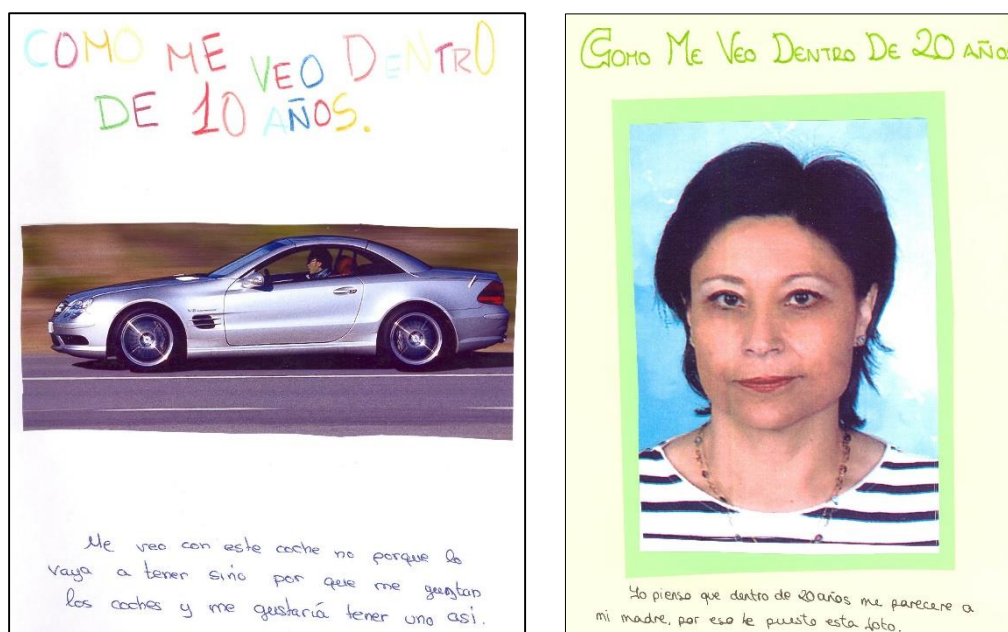 COMO ME VEO DENTRO
DE 10 AÑOS.
Me veo con este coche no porque lo
vaya a tener sino por que me gustan
los coches y me gustaría tener uno así.
COMO ME VEO DENTRO DE 20 AÑOS
Yo pienso que dentro de 20 años me parecere a
mi madre, por eso he puesto esta foto.